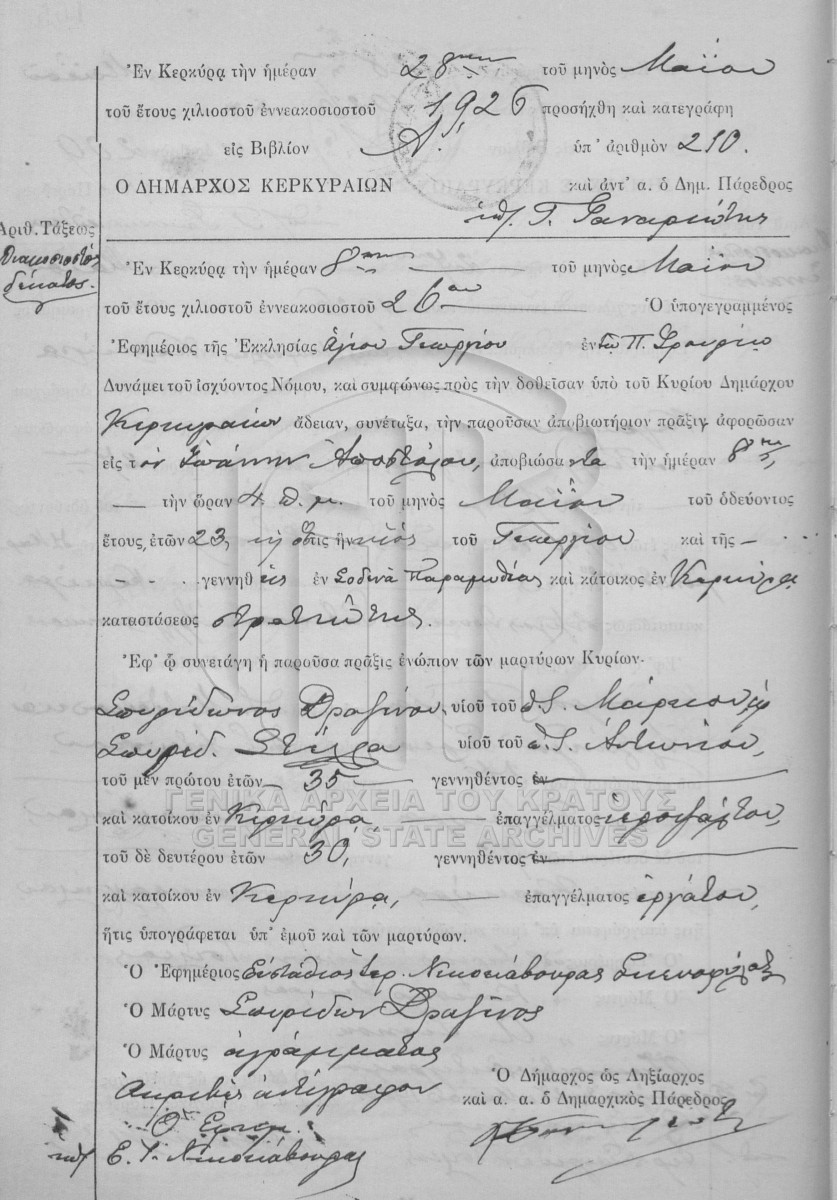 Ἐν Κερκύρᾳ τὴν ἡμέραν 28ην τοῦ μηνὸς Μαΐου
τοῦ ἔτους χιλιοστοῦ ἐννεακοσιοστοῦ 1926 προσήχθη καὶ κατεγράφη
εἰς Βιβλίον Α΄. ὑπ' ἀριθμὸν 210.
Ο ΔΗΜΑΡΧΟΣ ΚΕΡΚΥΡΑΙΩΝ καὶ ἀντ' α. ὁ Δημ. Πάρεδρος
Ἀριθ. Τάξεως
διακοσιοστὸς
δέκατος.
Ἐν Κερκύρᾳ τὴν ἡμέραν 8ην τοῦ μηνὸς Μαΐου
τοῦ ἔτους χιλιοστοῦ ἐννεακοσιοστοῦ 26ου Ὁ ὑπογεγραμμένος
Ἐφημέριος τῆς Ἐκκλησίας Ἁγίου Γεωργίου ἐν τῷ Π. Φρουρίῳ
Δυνάμει τοῦ ἰσχύοντος Νόμου, καὶ συμφώνως πρὸς τὴν δοθεῖσαν ὑπὸ τοῦ Κυρίου Δημάρχου
Κερκυραίων ἄδειαν, συνέταξα, τὴν παροῦσαν ἀποβιωτήριον πρᾶξιν ἀφορῶσαν
εἰς τὸν Ἰωάννην Ἀποστόλου, ἀποβιώσαντα τὴν ἡμέραν 8ην,
τὴν ὥραν 4 π. μ. τοῦ μηνὸς Μαΐου τοῦ ὁδεύοντος
ἔτους, ἐτῶν 23, ὅστις ἦν υἱὸς τοῦ Γεωργίου καὶ τῆς
γεννηθεὶς ἐν Παραμυθίας καὶ κάτοικος ἐν Κερκύρᾳ
καταστάσεως στρατιώτης.
Ἐφ' ᾧ συνετάγη ἡ παροῦσα πρᾶξις ἐνώπιον τῶν μαρτύρων Κυρίων.
Σπυρίδωνος Δραζίνου, υἱοῦ τοῦ Μάρκου
Σπυρίδ. Στέλλα υἱοῦ τοῦ Ἀντωνίου,
τοῦ μὲν πρώτου ἐτῶν 35 γεννηθέντος ἐν
καὶ κατοίκου ἐν Κερκύρᾳ ἐπαγγέλματος ἱεροψάλτου,
τοῦ δὲ δευτέρου ἐτῶν 30, γεννηθέντος ἐν
καὶ κατοίκου ἐν Κερκύρᾳ, ἐπαγγέλματος ἐργάτου,
ἥτις ὑπογράφεται ὑπ' ἐμοῦ καὶ τῶν μαρτύρων.
Ὁ Ἐφημέριος Εὐστάθιος ἱερ. Νικοκάβουρας Σκευοφύλαξ
Ὁ Μάρτυς Σπυρίδων Δραζίνος
Ὁ Μάρτυς ἀγράμματος
Ἀκριβὲς ἀντίγραφον
Ὁ Ἐφημ.
Ε. Ἰ. Νικοκάβουρας
Ὁ Δήμαρχος ὡς Ληξίαρχος
καὶ α. α. ὁ Δημαρχικὸς Πάρεδρος
ΓΕΝΙΚΑ ΑΡΧΕΙΑ ΤΟΥ ΚΡΑΤΟΥΣ
GENERAL STATE ARCHIVES